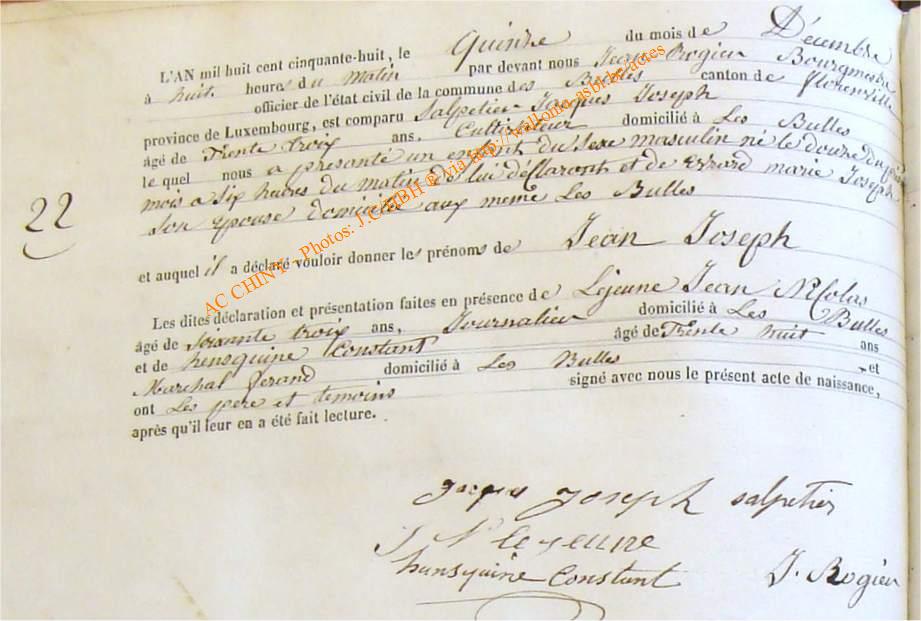 L'AN mil huit cent cinquante-huit, le Quinze du mois de Décembre
à huit heures du Matin par devant nous Jean Rogier Bourgmestre
officier de l'état civil de la commune des Bulles canton de florenville
province de Luxembourg, est comparu Salpetier Jacques Joseph
âgé de Trente trois ans, Cultivateur domicilié à Les Bulles
le quel nous a présanté un enfant du sexe masculin né le douze du
mois a six heures du matin de lui déclarant et de marie Joseph
son épouse domicilié aux meme Les Bulles
22
et auquel il a déclaré vouloir donner les prénoms de Jean Joseph
Les dites déclaration et présentation faites en présence de Lejeune Jean Nicolas
âgé de Soixante troix ans, Journalier domicilié à Les Bulles
et de hensquine Constant âgé de Trente huit ans
Marchal ferand domicilié à Les Bulles et
ont Les pere et temoins signé avec nous le présent acte de naissance,
après qu'il leur en a été fait lecture.
jacques joseph salpetier
J N lejeune
hensquine Constant J. Rogier
AC CHINY - Photos: J.C.HBH © via http://wallonia-asbl.be/actes